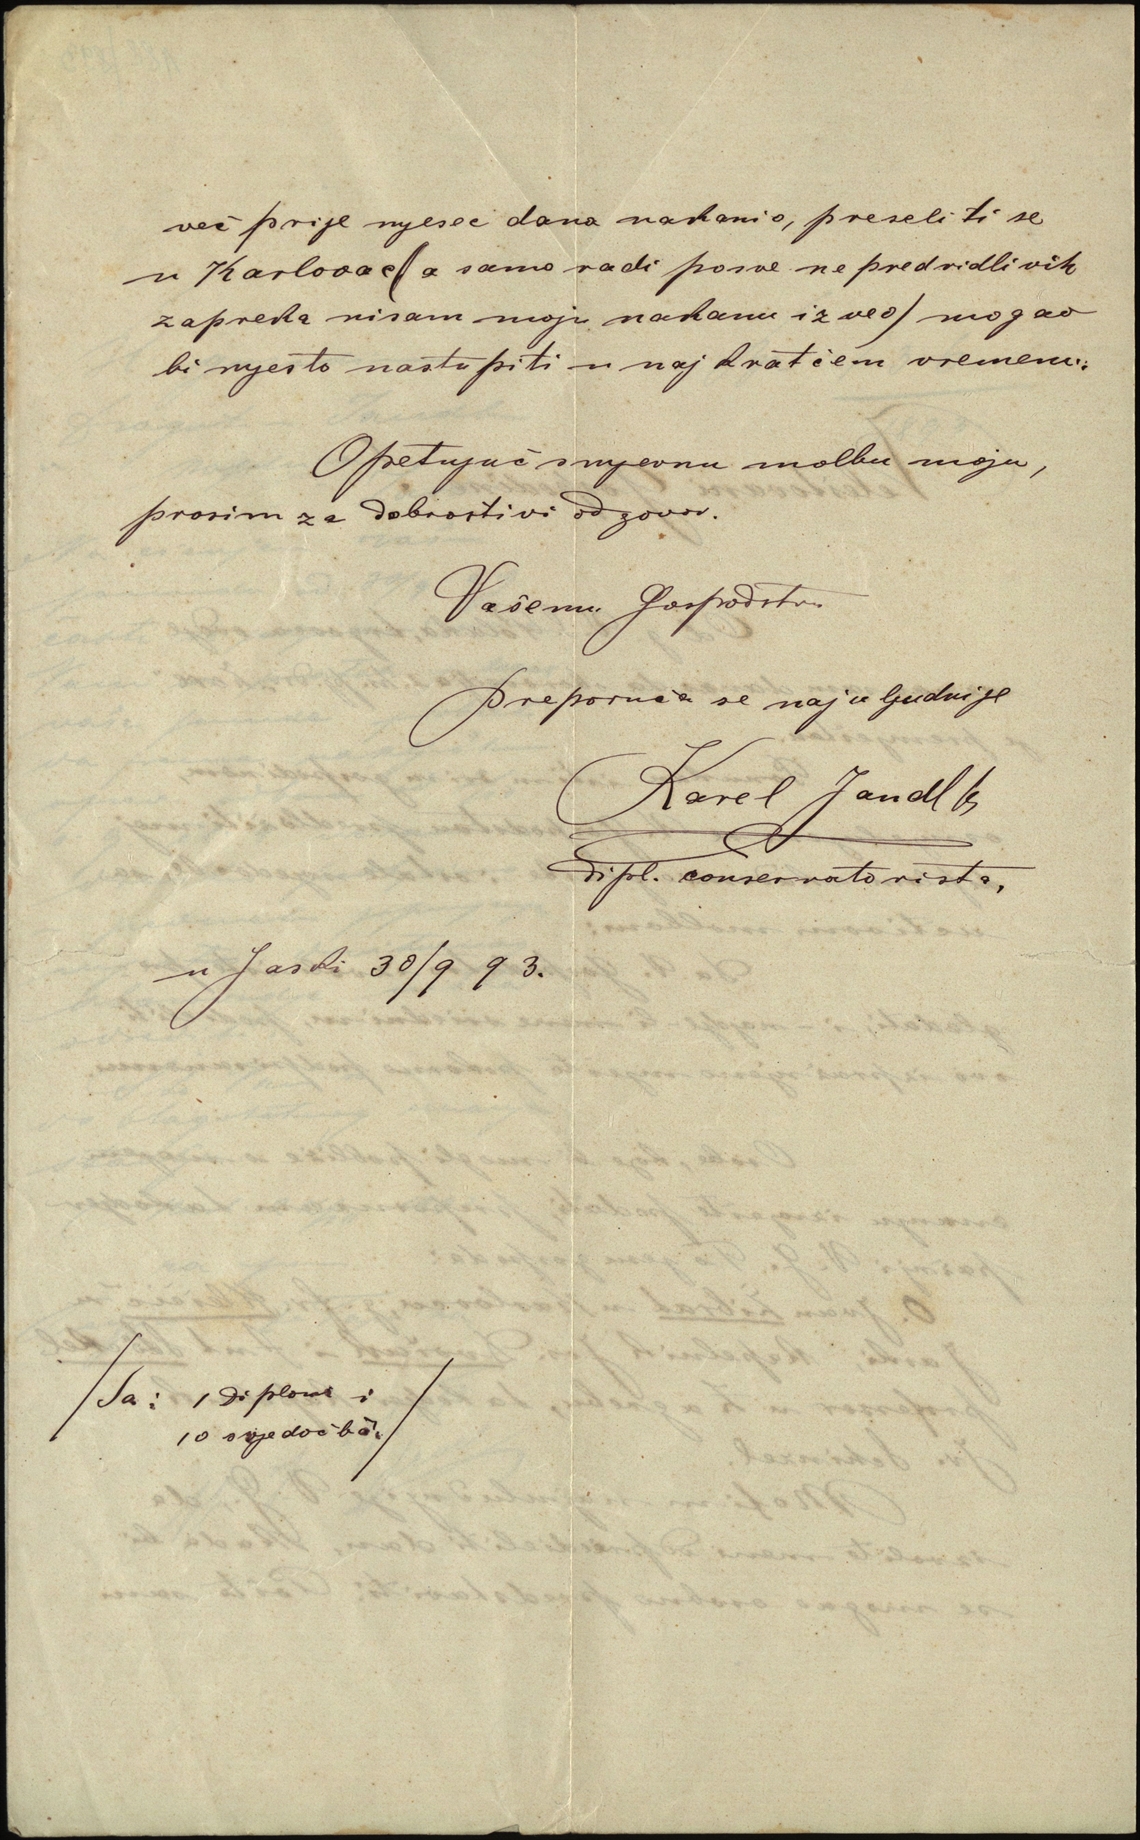 već prije mjesec dana nakanio, preseliti se
u Karlovac (a samo radi posve nepredvidlivih
zapreka nisam moju nakanu izveo) mogao
bi mjesto nastupiti u najkratćem vremenu.
Opetujuć smjernu molbu moju,
prosim za dobrostivi odgovor.
Vašemu Gospodstvu
preporuča se najuljudnije
Karel Jandl
dipl. conservatorista,
u Jaski 30/9 93.
/Sa: 1 diplomi i
10 svjedočba./